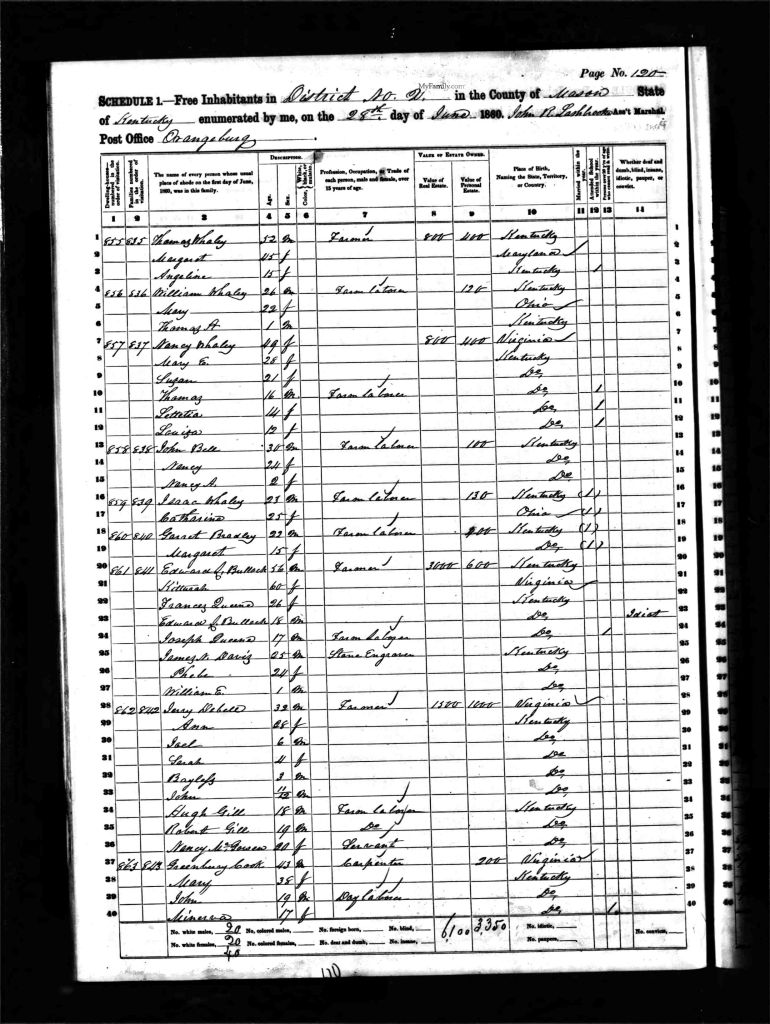 Page No. 120
MyFamily.com
SCHEDULE 1.—Free Inhabitants in District No. 2. in the County of Mason State
of Kentucky enumerated by me, on the 28th day of June 1860. John R. Ass't Marshal.
Post Office Orangeburg
DESCRIPTION. VALUE OF ESTATE OWNED.
Dwelling-houses—numbered in the order of visitation. Families numbered in the order of visitation. The name of every person whose usual place of abode on the first day of June, 1860, was in this family. Age. Sex. Color, White, black, or mulatto. Profession, Occupation, or Trade of each person, male and female, over 15 years of age. Value of Real Estate. Value of Personal Estate. Place of Birth, Naming the State, Territory, or Country. Married within the year. Attended School within the year. Whether deaf and dumb, blind, insane, idiotic, pauper, or convict.
1 2 3 4 5 6 7 8 9 10 11 12 13 14
1 855 835 Thomas Whaley 52 m Farmer 800 400 Kentucky 1
2 Margaret 45 f Maryland 2
3 Angeline 15 f Kentucky 1 3
4 856 836 William Whaley 26 m Farm laborer 120 Kentucky 4
5 Mary 22 f Ohio 5
6 Thomas A 1 m Kentucky 6
7 857 837 Nancy Whaley 49 f 800 400 Virginia 7
8 Mary E. 28 f Kentucky 8
9 Susan 21 f Do, 9
10 Thomas 16 m Farm laborer Do, 1 10
11 14 f Do, 1 11
12 Louisa 12 f Do, 1 12
13 858 838 John Bell 30 m Farm laborer 100 Kentucky 13
14 Nancy 24 f Do, 14
15 Nancy A. 2 f Do, 15
16 859 839 Isaac Whaley 23 m Farm laborer 130 Kentucky (1) 16
17 Catharine 25 f Ohio (1) 17
18 860 840 Garret Bradley 22 m Farm laborer Kentucky (1) 18
19 Margaret 15 f Do, (1) 19
20 861 841 Edward J. Bullock 56 m Farmer 3000 600 Kentucky 20
21 60 f Virginia 21
22 Frances 26 f Kentucky 22
23 Edward J. Bullock 18 m Do, Idiot 23
24 Joseph 17 m Farm laborer Do, 1 24
25 James N. Davis 25 m Stone Engraver Kentucky 25
26 Phebe 24 f Do, 26
27 William E. 1 m Do, 27
28 862 842 Jerry Debell 32 m Farmer 1500 1000 Virginia 28
29 Ann 28 f Kentucky 29
30 Joel 6 m Do, 30
31 Sarah 4 f Do 31
32 Bayless 3 m Do, 32
33 John 11/12 m Do, 33
34 Hugh Gill 18 m Farm laborer Kentucky 34
35 Robert Gill 19 m Do Do, 35
36 Nancy 20 f Servant Do, 36
37 863 843 Greenbury Cook 43 m Carpenter 200 Virginia 37
38 Mary 38 f Kentucky 38
39 John 19 m Day laborer Do, 39
40 Minerva 17 f Do, 1 40
No. white males, 20 No. colored males, No. foreign born, No. blind, 6,100 3,350 No. idiotic, No. convicts,
No. white females, 20 No. colored females, No. deaf and dumb, No. insane, No. paupers,
40
110